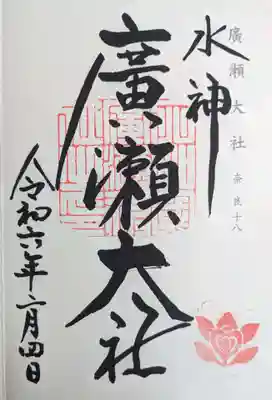 廣瀬大社 奈良十八
水神
廣瀬大社
令和六年二月四日